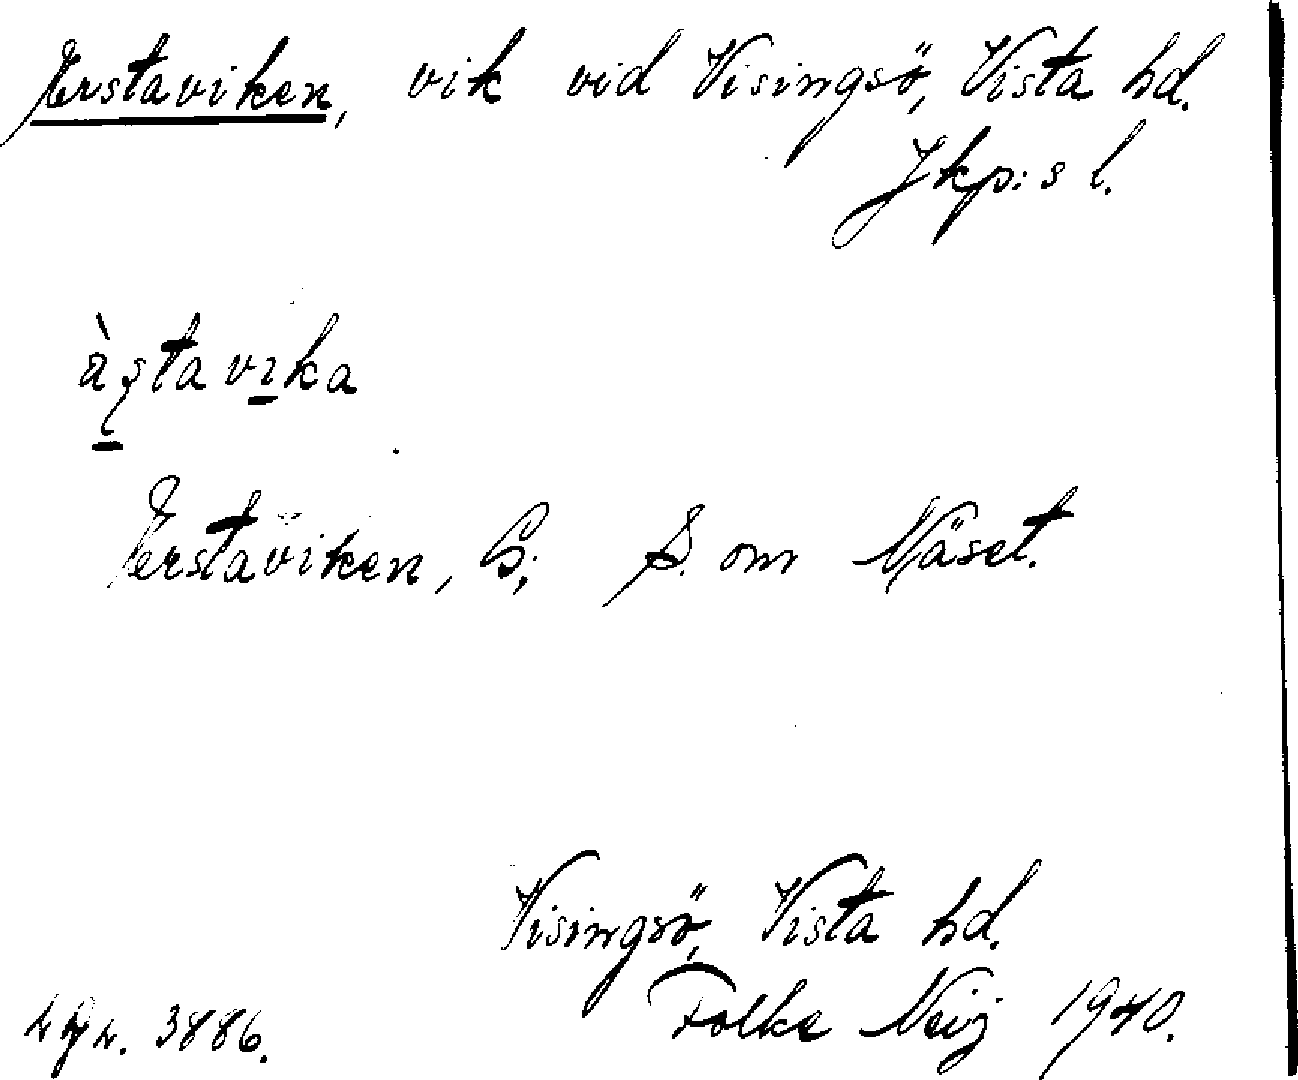 Erstaviken, vik vid Visingsö, Vista hd.
Jkp:s l.
àstavika
Erstaviken, G; S. om Näset.
Visingsö, Vista hd.
3886. Folke Neij 1940.